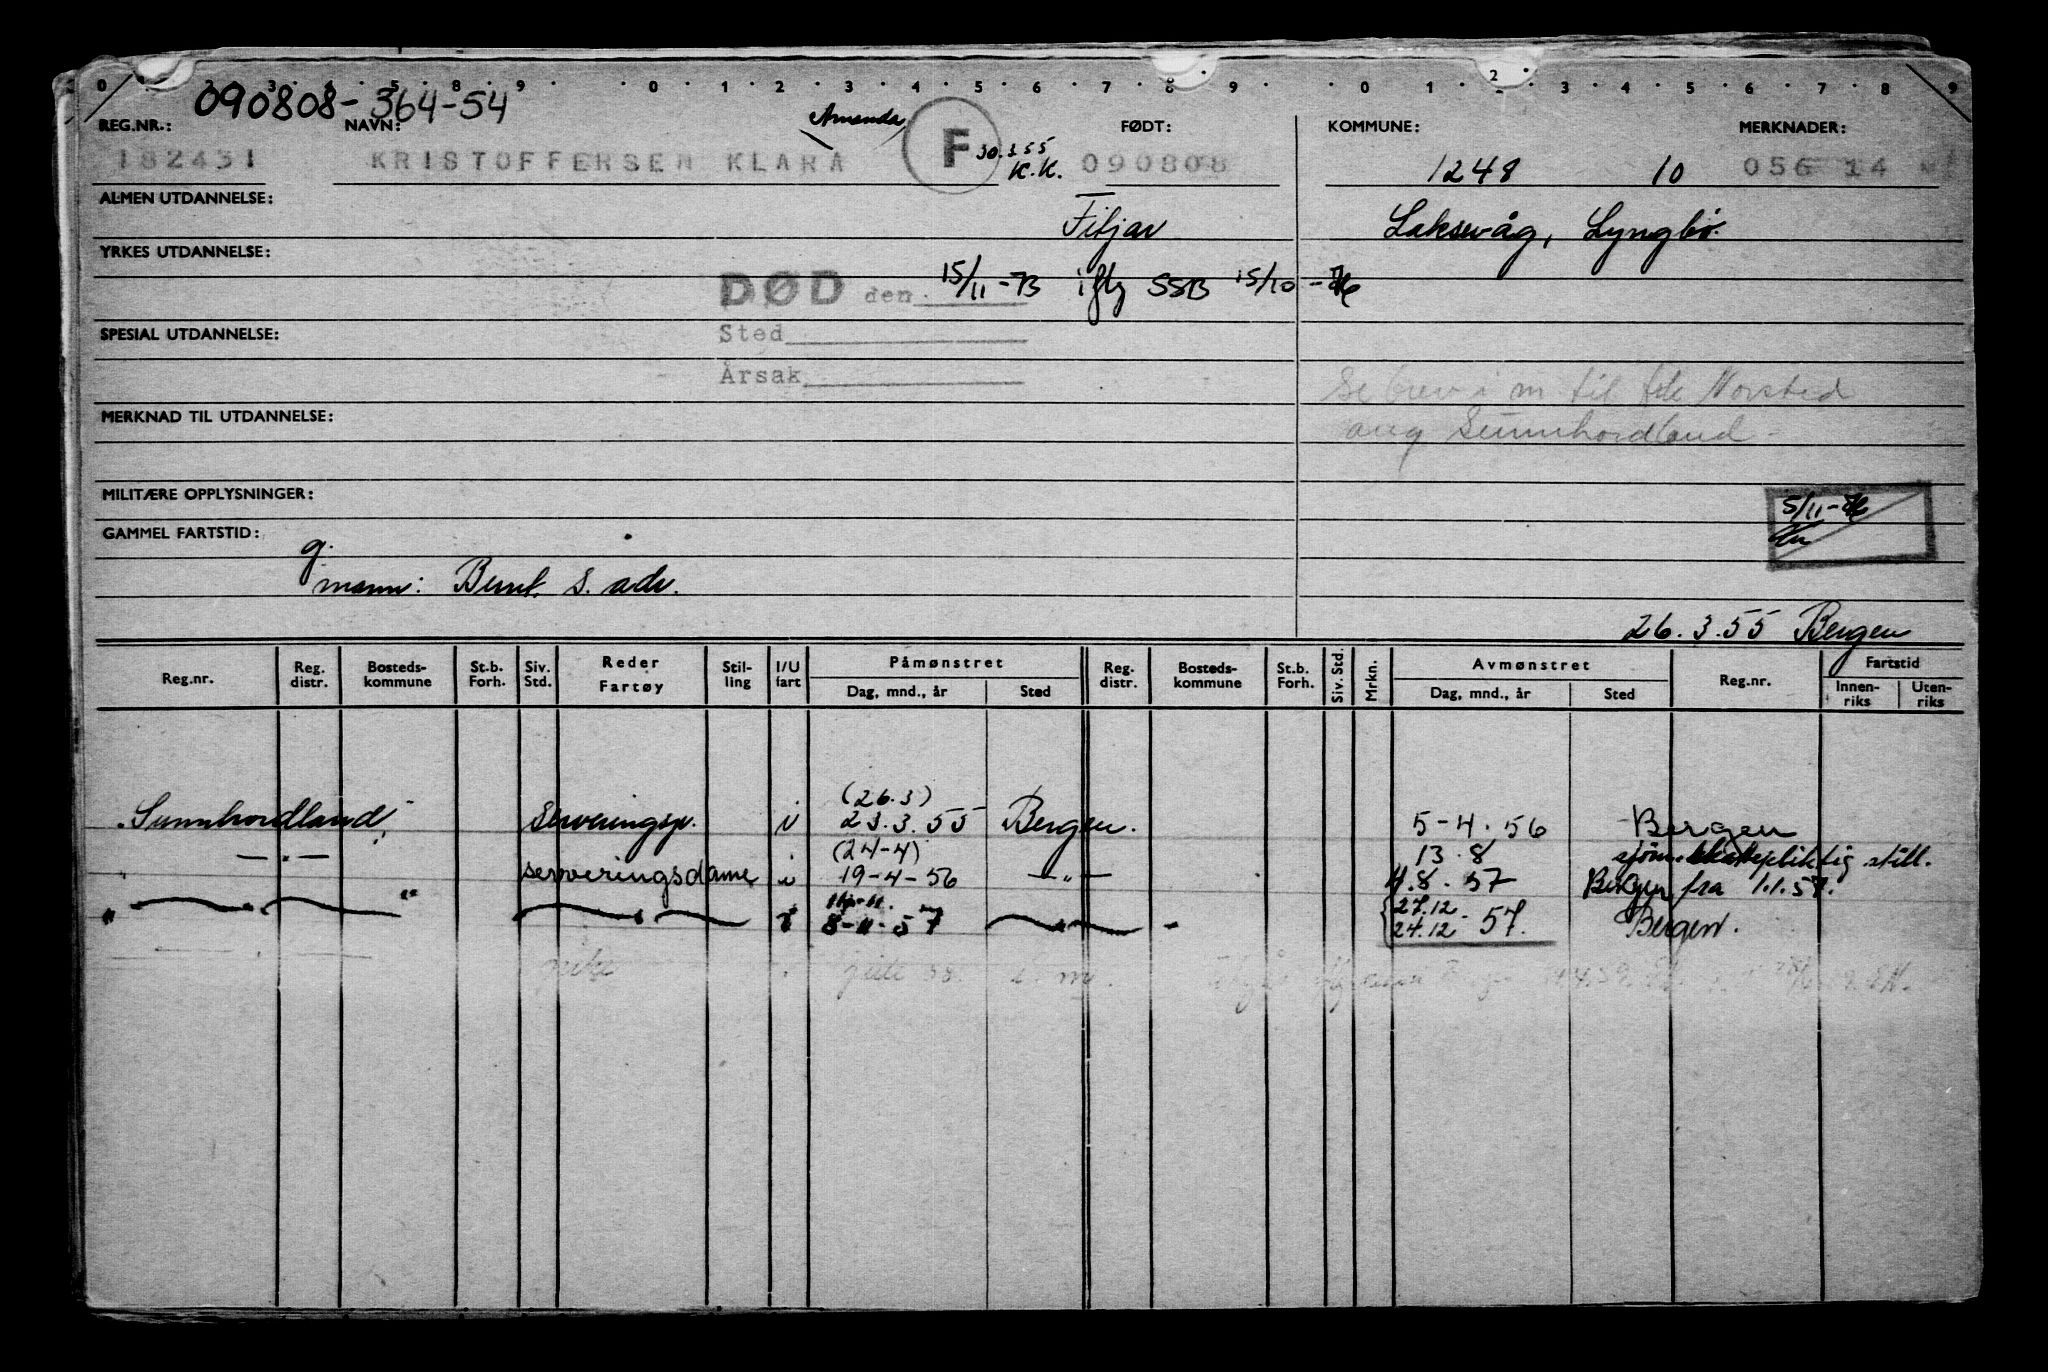 0 3 4 5 8 9 0 1 2 3 4 5 6 7 8 9 0 1 2 3 4 5 6 7 8 9
090808-364-54
REG.NR.: NAVN: Amanda FØDT: KOMMUNE: MERKNADER:
182431 KRISTOFFERSEN KLARA F 30.3.55 K.K. 090808 1248 10 056 14
ALMEN UTDANNELSE: Fitjar Laksevåg, Lyngbø.
YRKES UTDANNELSE:
DØD den 15/11-73 iflg SSB 15/10-76
SPESIAL UTDANNELSE: Sted
Årsak
Se brev i m til fde Norsted
MERKNAD TIL UTDANNELSE: ang Sunnhordland
MILITÆRE OPPLYSNINGER: 5/11-76
GAMMEL FARTSTID:
g.
mann: Bernt. S. adr.
26.3.55 Bergen
Reg.nr. Reg. distr. Bosteds-kommune St.b. Forh. Siv. Std. Reder Fartøy Stil-ling I/U fart Påmønstret Reg. distr. Bosteds-kommune St.b. Forh. Siv. Std. Mrkn. Avmønstret Reg.nr. Fartstid
Dag, mnd., år Sted Dag, mnd., år Sted Innen-riks Uten-riks
(26.3)
Sunnhordland, Serveringsp. i 23.3.55 Bergen. 5-4.56 Bergen
—„— (24-4) 13.8 sjøm.skattepliktig still.
serveringsdame i 19-4-56 —„— 4.8.57 Bergen fra 1.1.57.
" i 8-11-57 27.12 24.12.57. Bergen.